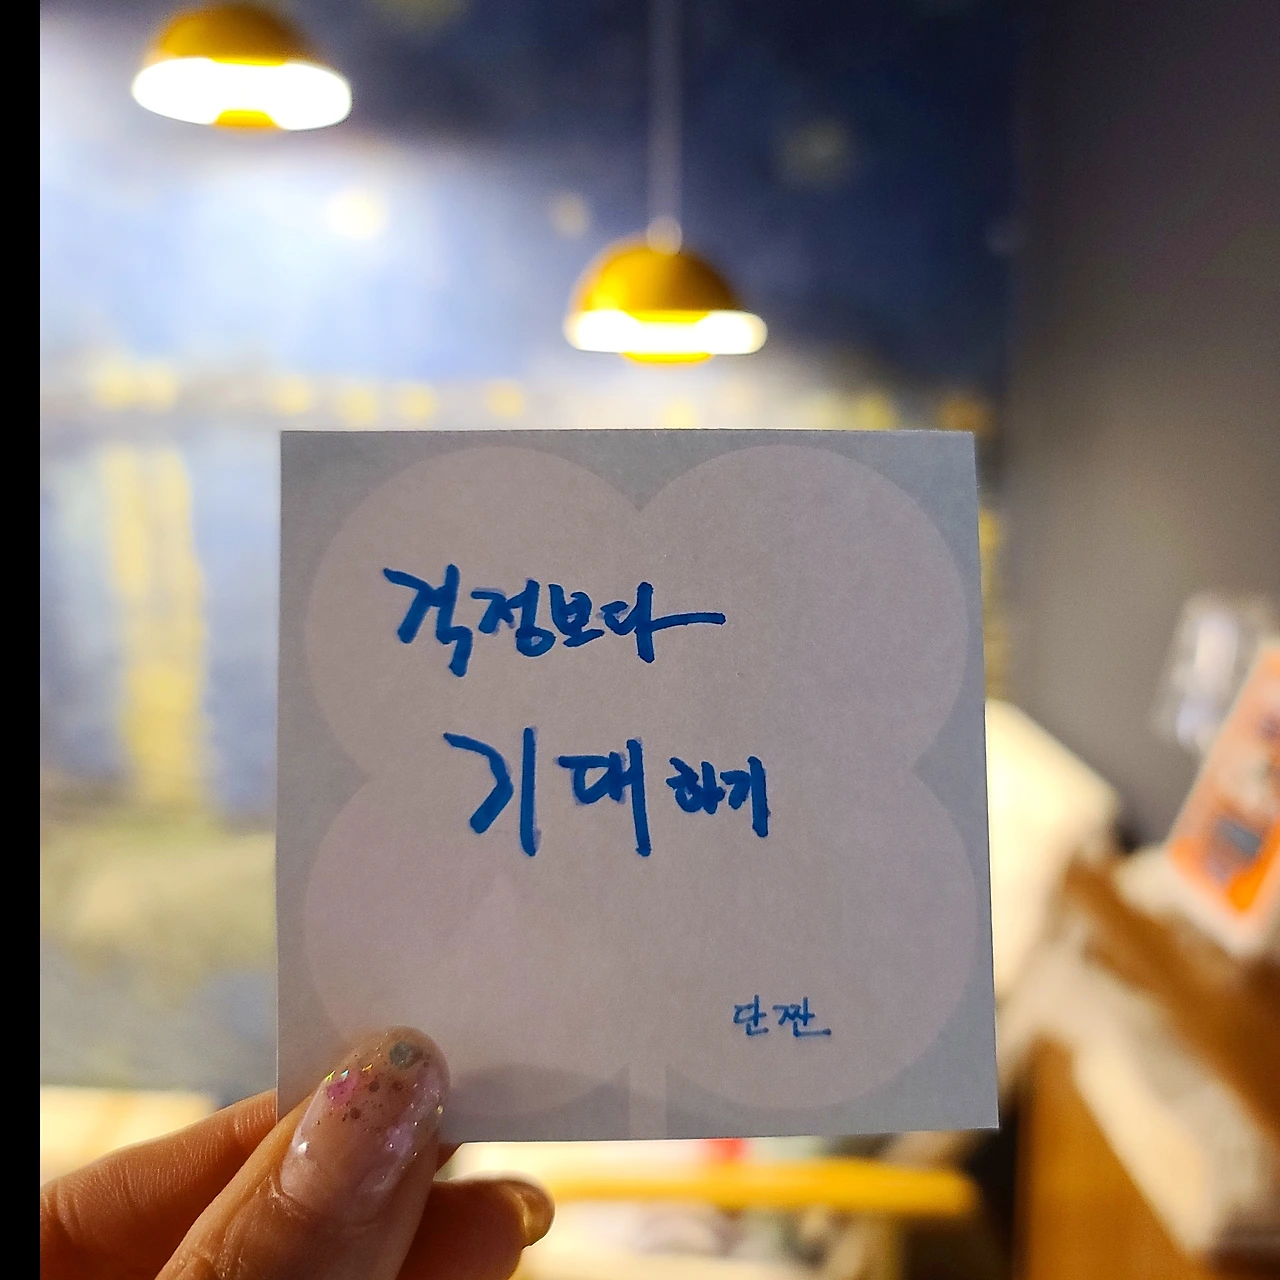 걱정보다
기대하기
단짠